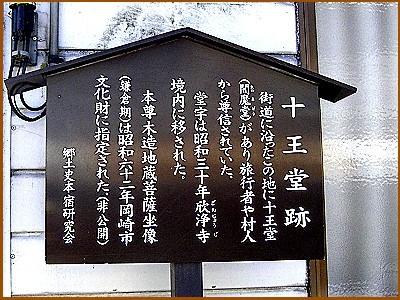 十王堂跡
街道に沿ったこの地に十王堂
(閻魔堂)があり旅行者や村人
から尊信されていた。
堂宇は昭和三十年欣浄寺
境内に移された。
本尊木造地蔵菩薩坐像
(鎌倉期)は昭和六十二年岡崎市
文化財に指定された。(非公開)
郷土史本宿研究会